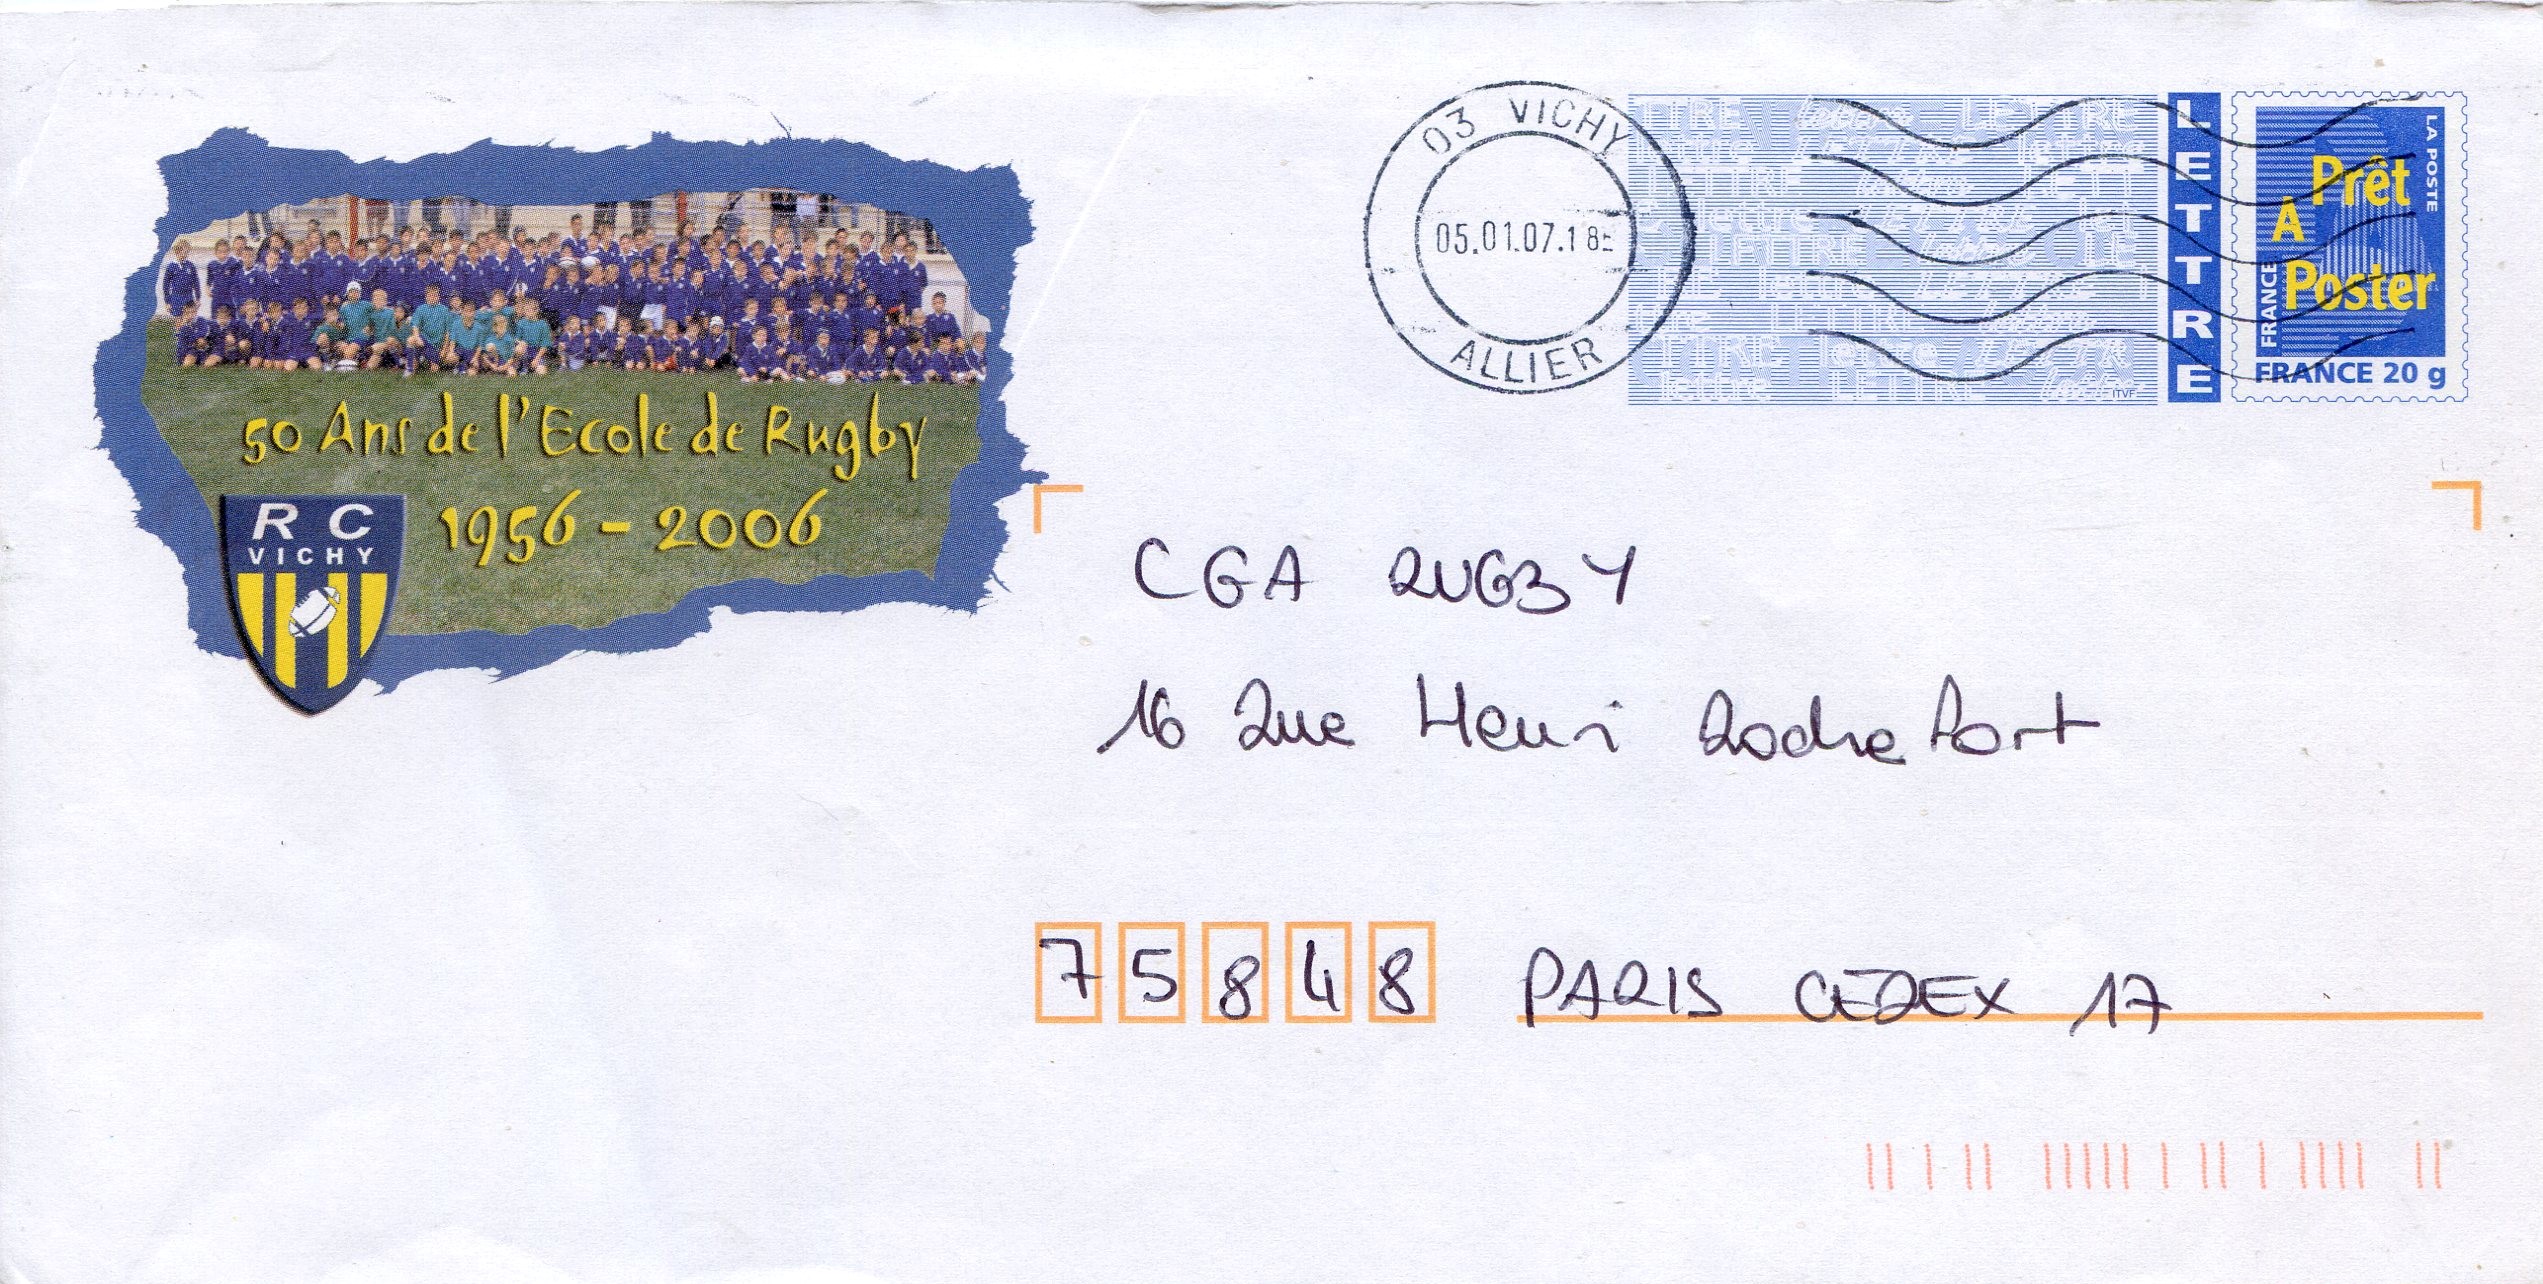 50 Ans de l'Ecole de Rugby
1956 - 2006
R C
VICHY
03 VICHY
05.01.07.18
ALLIER
LETTRE
LA POSTE
Prêt
A
Poster
FRANCE
FRANCE 20 g
ITVF
CGA RUGBY
16 Rue Henri Rochefort
75848 PARIS CEDEX 17